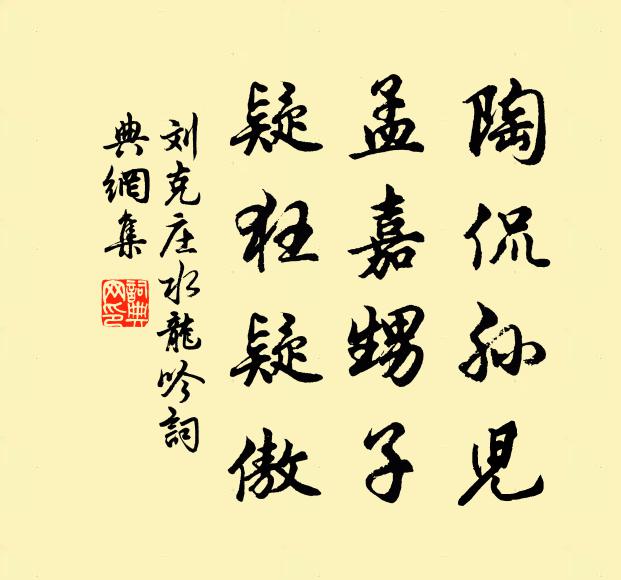 陶侃孙児
孟嘉甥子
疑狂疑傲
刘克庄水龍吟詞
典網集
詞典网印